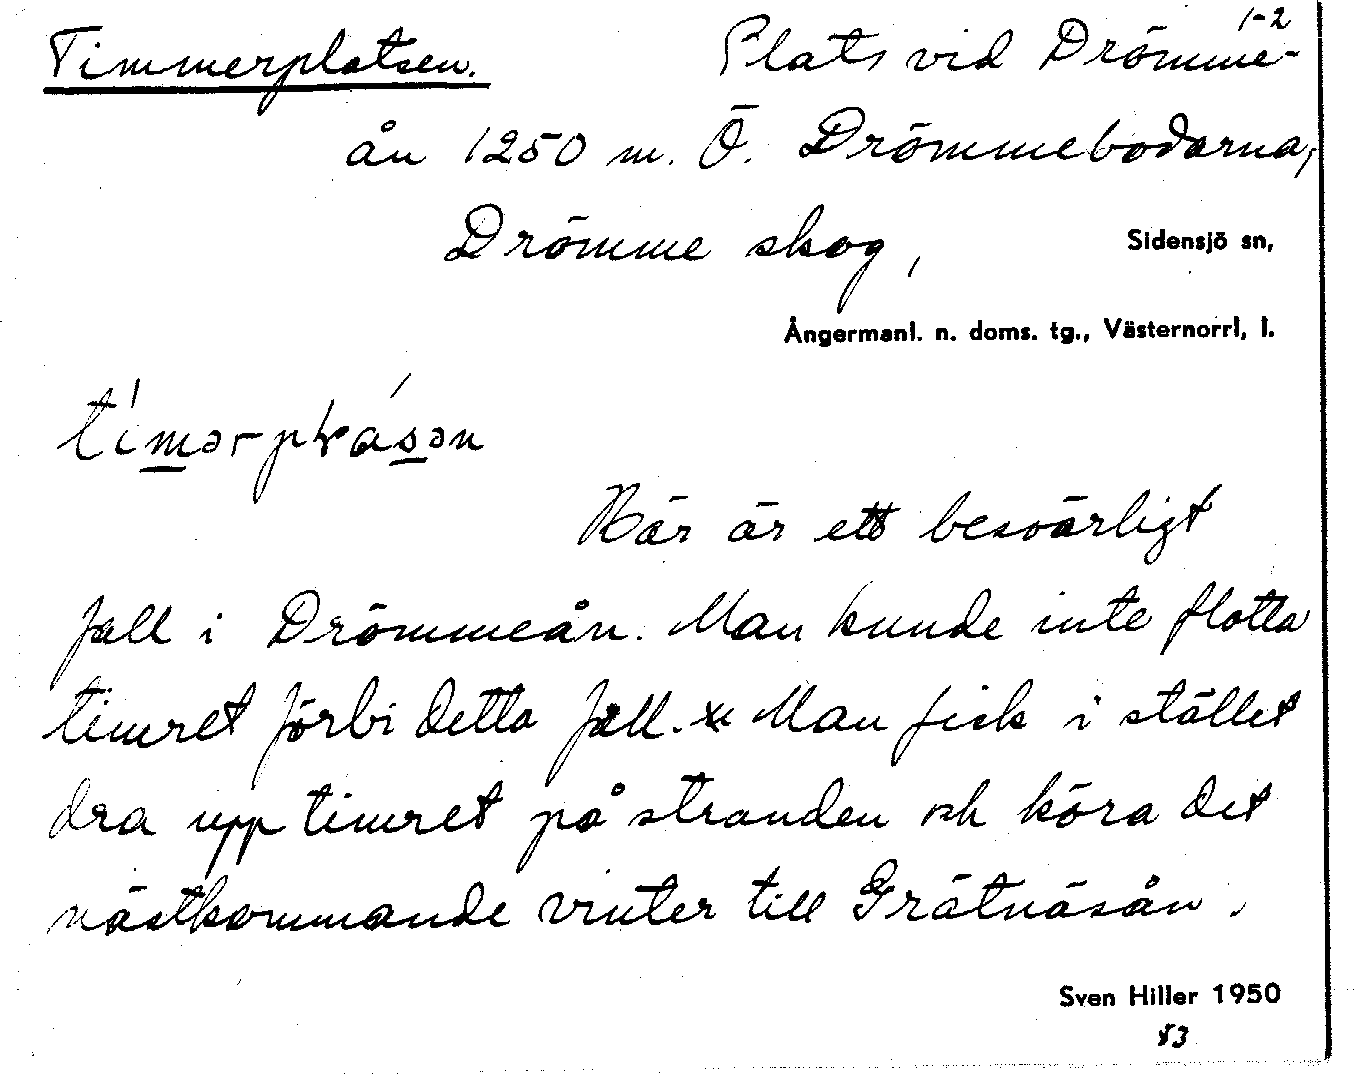 1-2
Timmerplatsen. Plats vid Drömme-
ån 1250 m. Ö. Drömmebodarna,
Drömme skog, Sidensjö sn,
Ångermanl. n. doms. tg., Västernorrl, l.
Här är ett besvärligt
fall i Drömmeån. Man kunde inte flotta
timret förbi detta fall. Man fick i stället
dra upp timret på stranden och köra det
nästkommande vinter till Grätnäsån.
Sven Hiller 1950
83